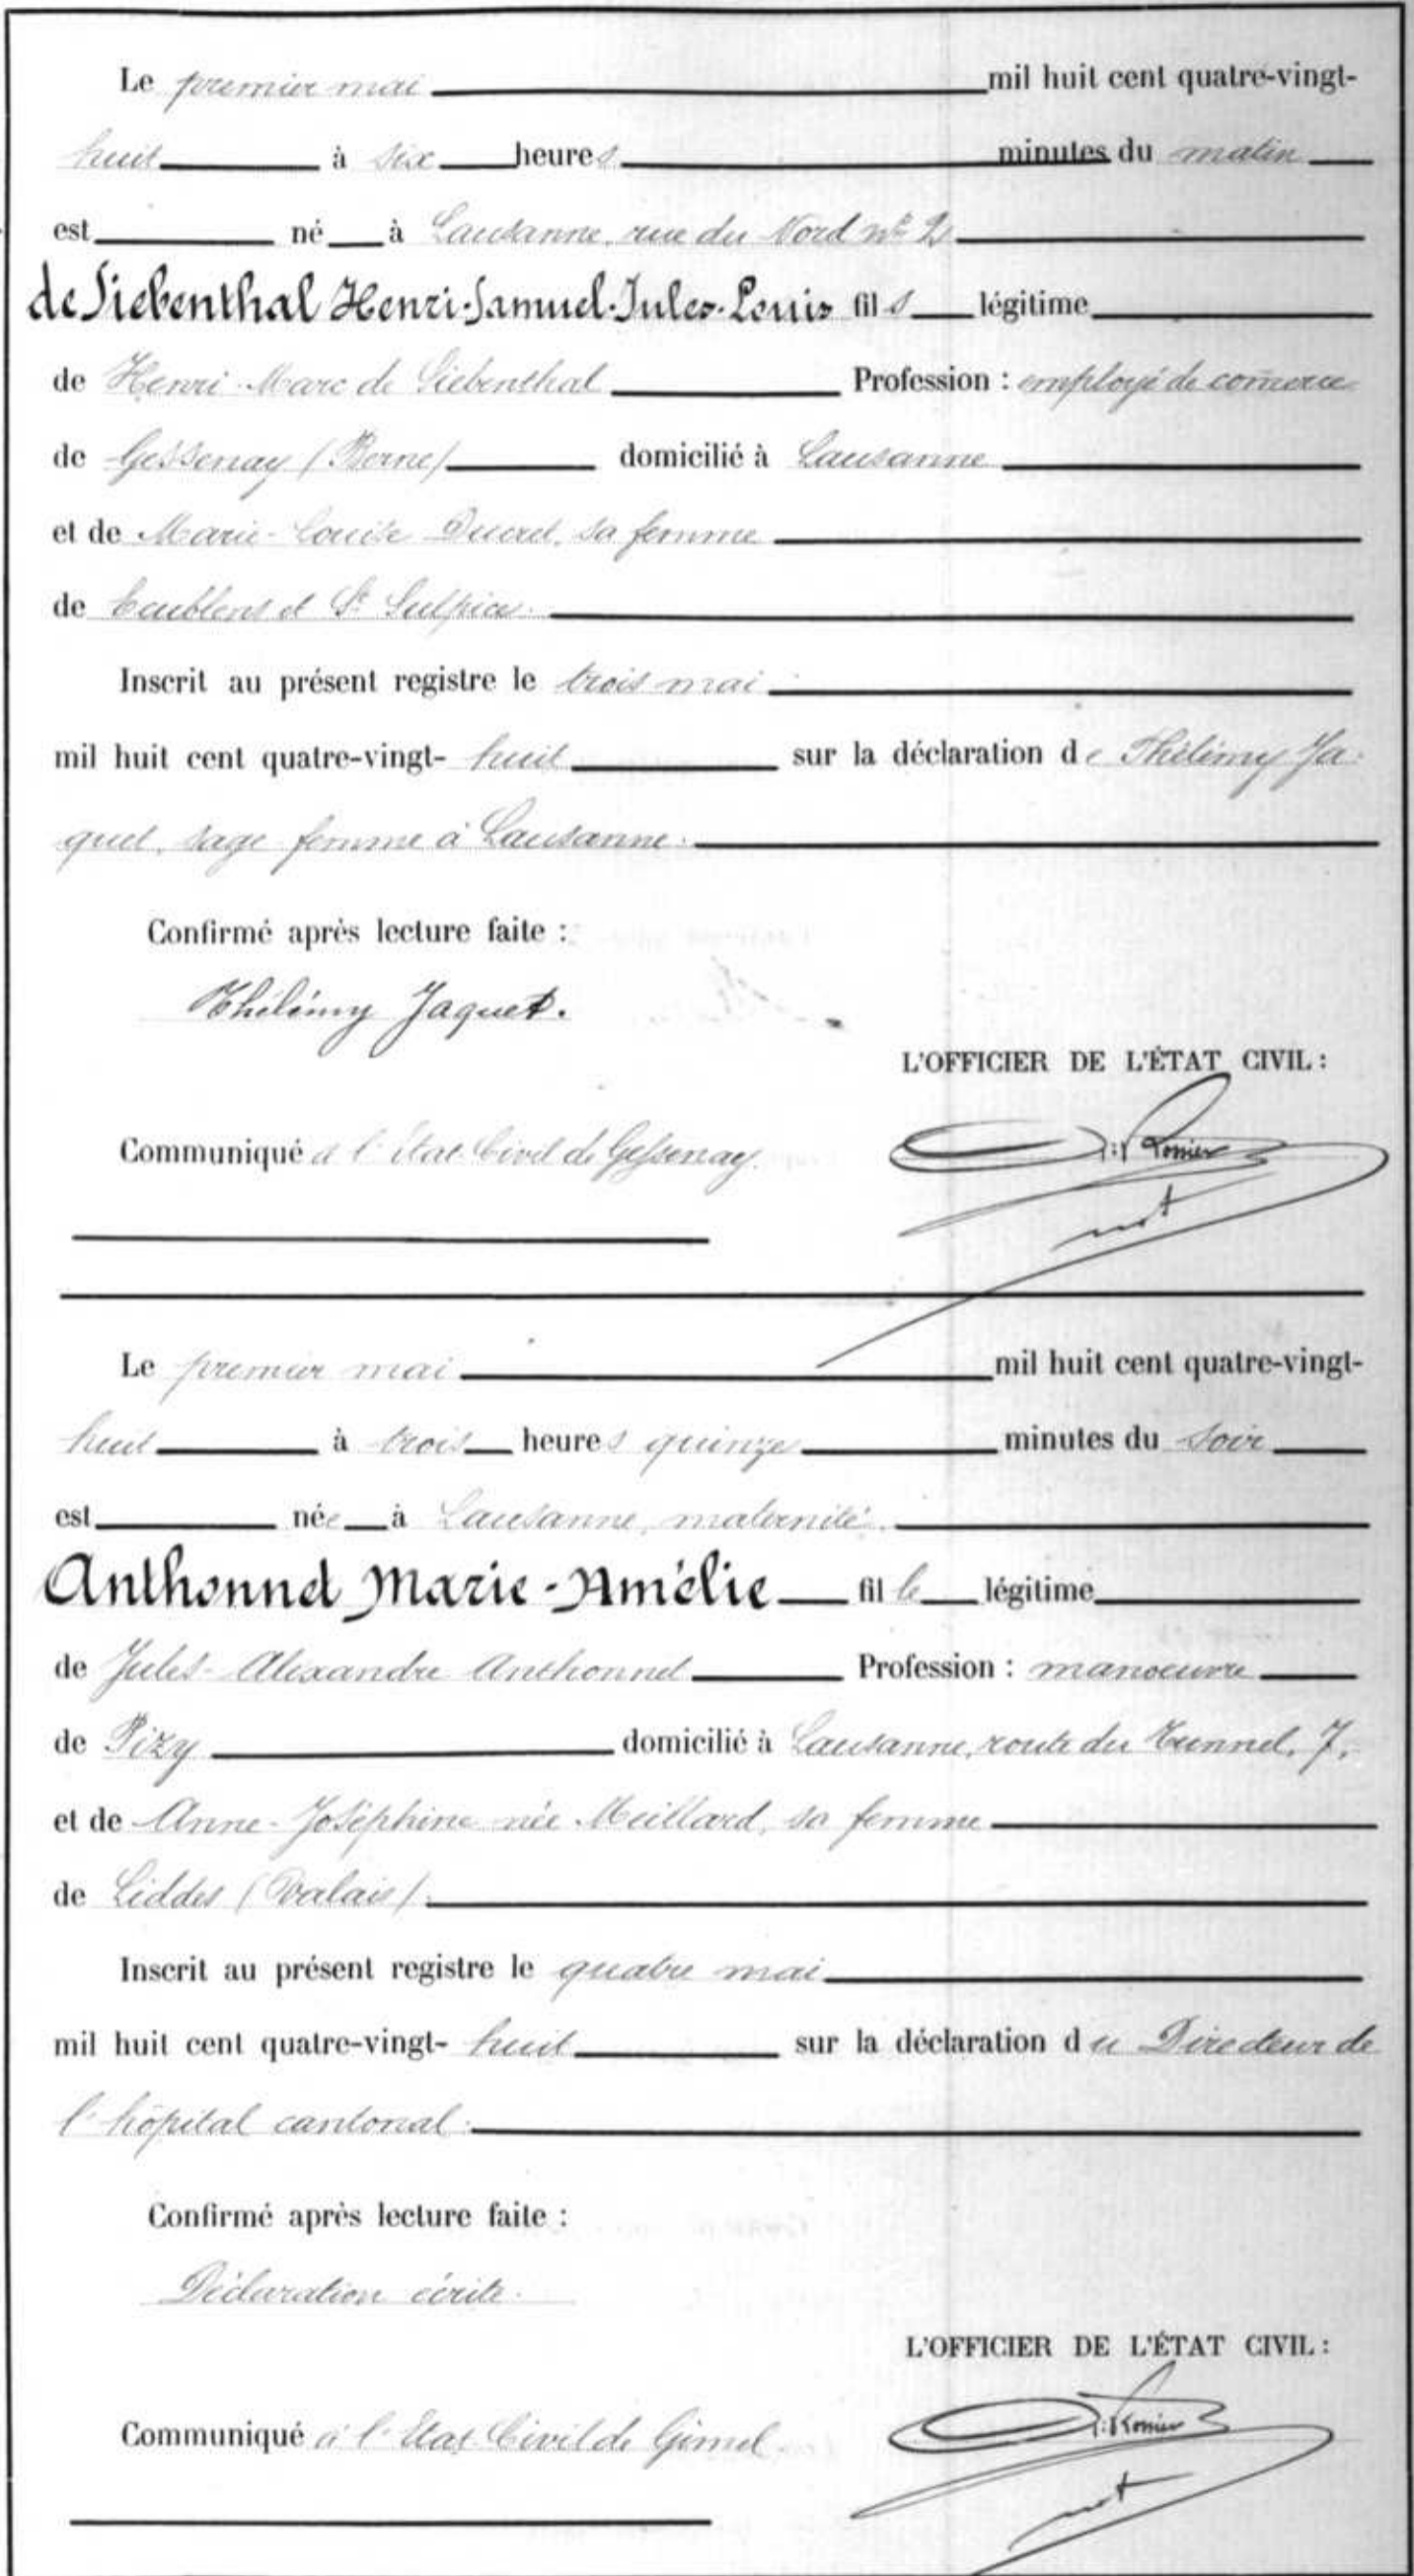 Le premier mai mil huit cent quatre-vingt-
huit à six heures minutes du matin
est né à Lausanne, rue du Nord n° 2
de Siebenthal Henri-Samuel-Jules-Louis fils légitime
de Henri-Marc de Siebenthal Profession : employé de comerce
de Gessenay (Berne) domicilié à Lausanne
et de Marie-Louise Ducret, sa femme
de Ecublens et St Sulpice.
Inscrit au présent registre le trois mai
mil huit cent quatre-vingt- huit sur la déclaration de Thélimy Ja-
quet, sage-femme à Lausanne.
Confirmé après lecture faite :
Thélimy Jaquet.
L'OFFICIER DE L'ÉTAT CIVIL :
Communiqué à l'état Civil de Gessenay.
not
Le premier mai mil huit cent quatre-vingt-
huit à trois heures quinze minutes du soir
est née à Lausanne, maternité.
Anthonnet Marie-Amélie fille légitime
de Jules-Alexandre Anthonnet Profession : manoeuvre
de Pizy domicilié à Lausanne, route du Tunnel, 7,
et de Anne-Joséphine née Meillard, sa femme
de Liddes (Valais).
Inscrit au présent registre le quatre mai
mil huit cent quatre-vingt- huit sur la déclaration du Directeur de
l'hôpital cantonal.
Confirmé après lecture faite :
Déclaration écrite.
L'OFFICIER DE L'ÉTAT CIVIL :
Communiqué à l'Etat Civil de Gimel
not